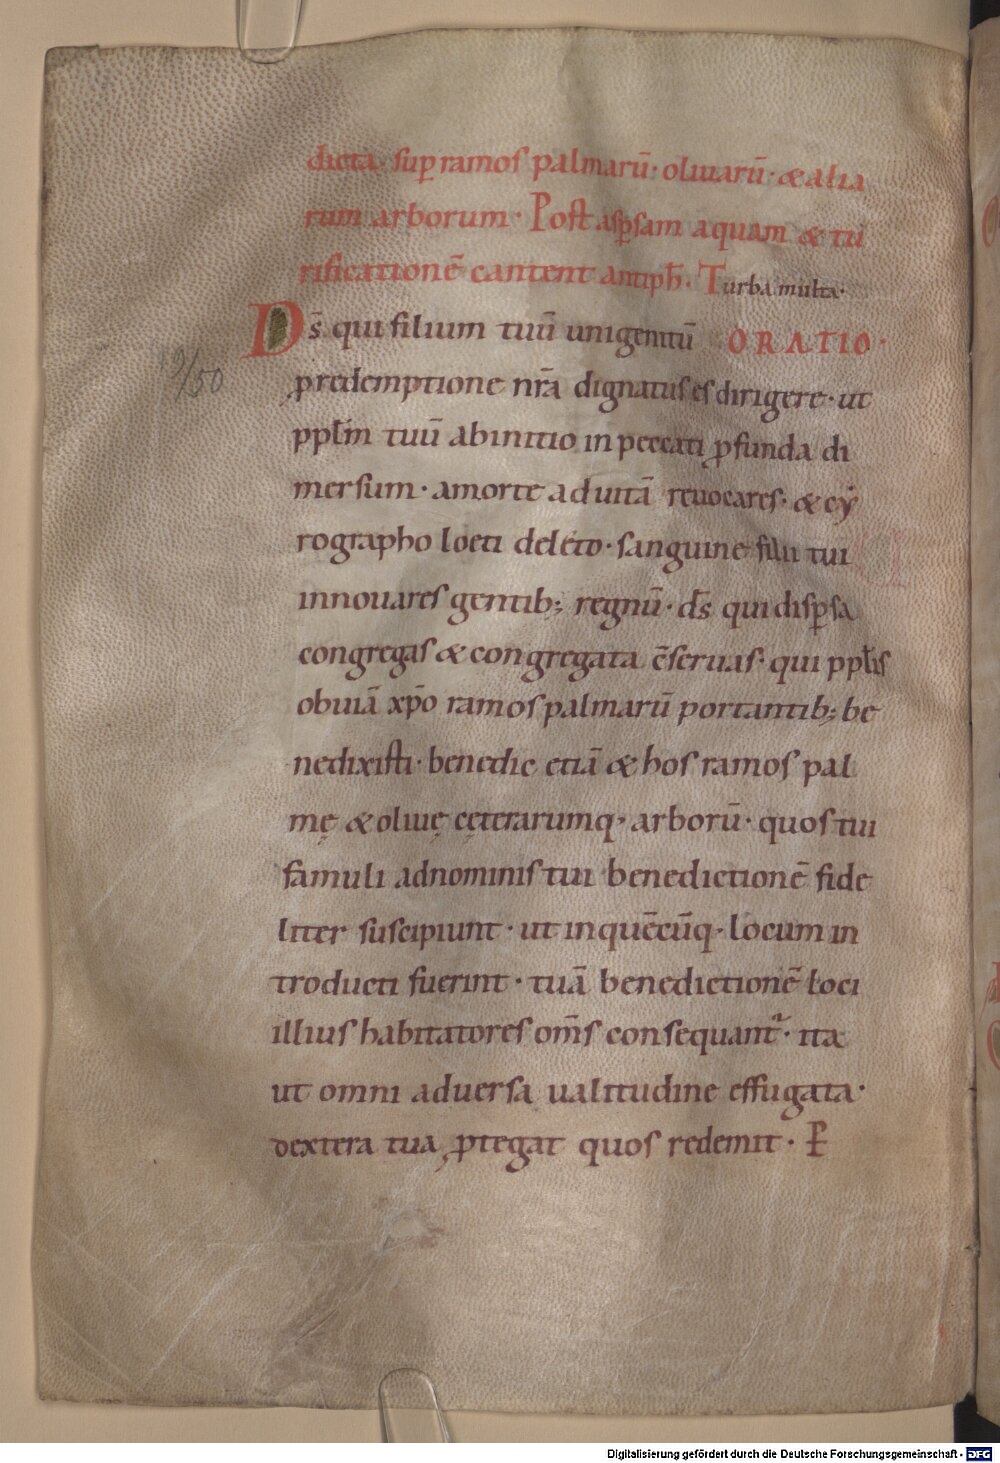 dicta sup̄ ramos palmarū· oliuarū· & alia
rum arborum· Post asp̄sam aquam & tu
rificationē cantent antiph̄· Turba multa·
Ds̄ qui filium tuū unigenitū ORATIO·
p redemptione nr̄a dignatus es dirigere· ut
ppl̄m tuū ab initio in peccati p̄funda di
mersum· a morte ad uitā reuocares· & cy
rographo loeti deleto· sanguine filii tui
innouares gentib; regnū· ds̄ qui disp̄sa
congregas & congregata c̄seruas· qui ppl̄is
obuiā xp̄o ramos palmarū portantib; be
nedixisti· benedic etiā & hos ramos pal
mę & oliuę cęterarumq· arborū· quos tui
famuli ad nominis tui benedictionē fide
liter suscipiunt· ut in quēcūq· locum in
troducti fuerint· tuā benedictionē loci
illius habitatores om̄s consequant᷑· ita
ut omni aduersa ualitudine effugata·
dextera tua p̄tegat quos redemit· P̄
9/50
Digitalisierung gefördert durch die Deutsche Forschungsgemeinschaft - DFG